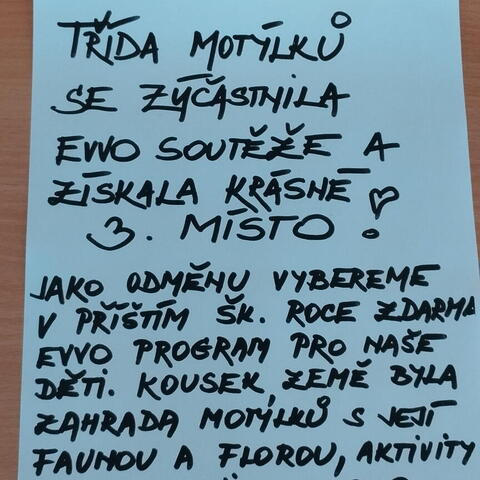 TŘÍDA MOTÝLKŮ
SE ZÝČASTNILA
EVVO SOUTĚŽE A
ZÍSKALA KRÁSNÉ
3. MÍSTO!
JAKO ODMĚNU VYBEREME
V PŘÍŠTÍM ŠK. ROCE ZDARMA
EVVO PROGRAM PRO NAŠE
DĚTI. KOUSEK ZEMĚ BYLA
ZAHRADA MOTÝLKŮ S JEJÍ
FAUNOU A FLOROU, AKTIVITY